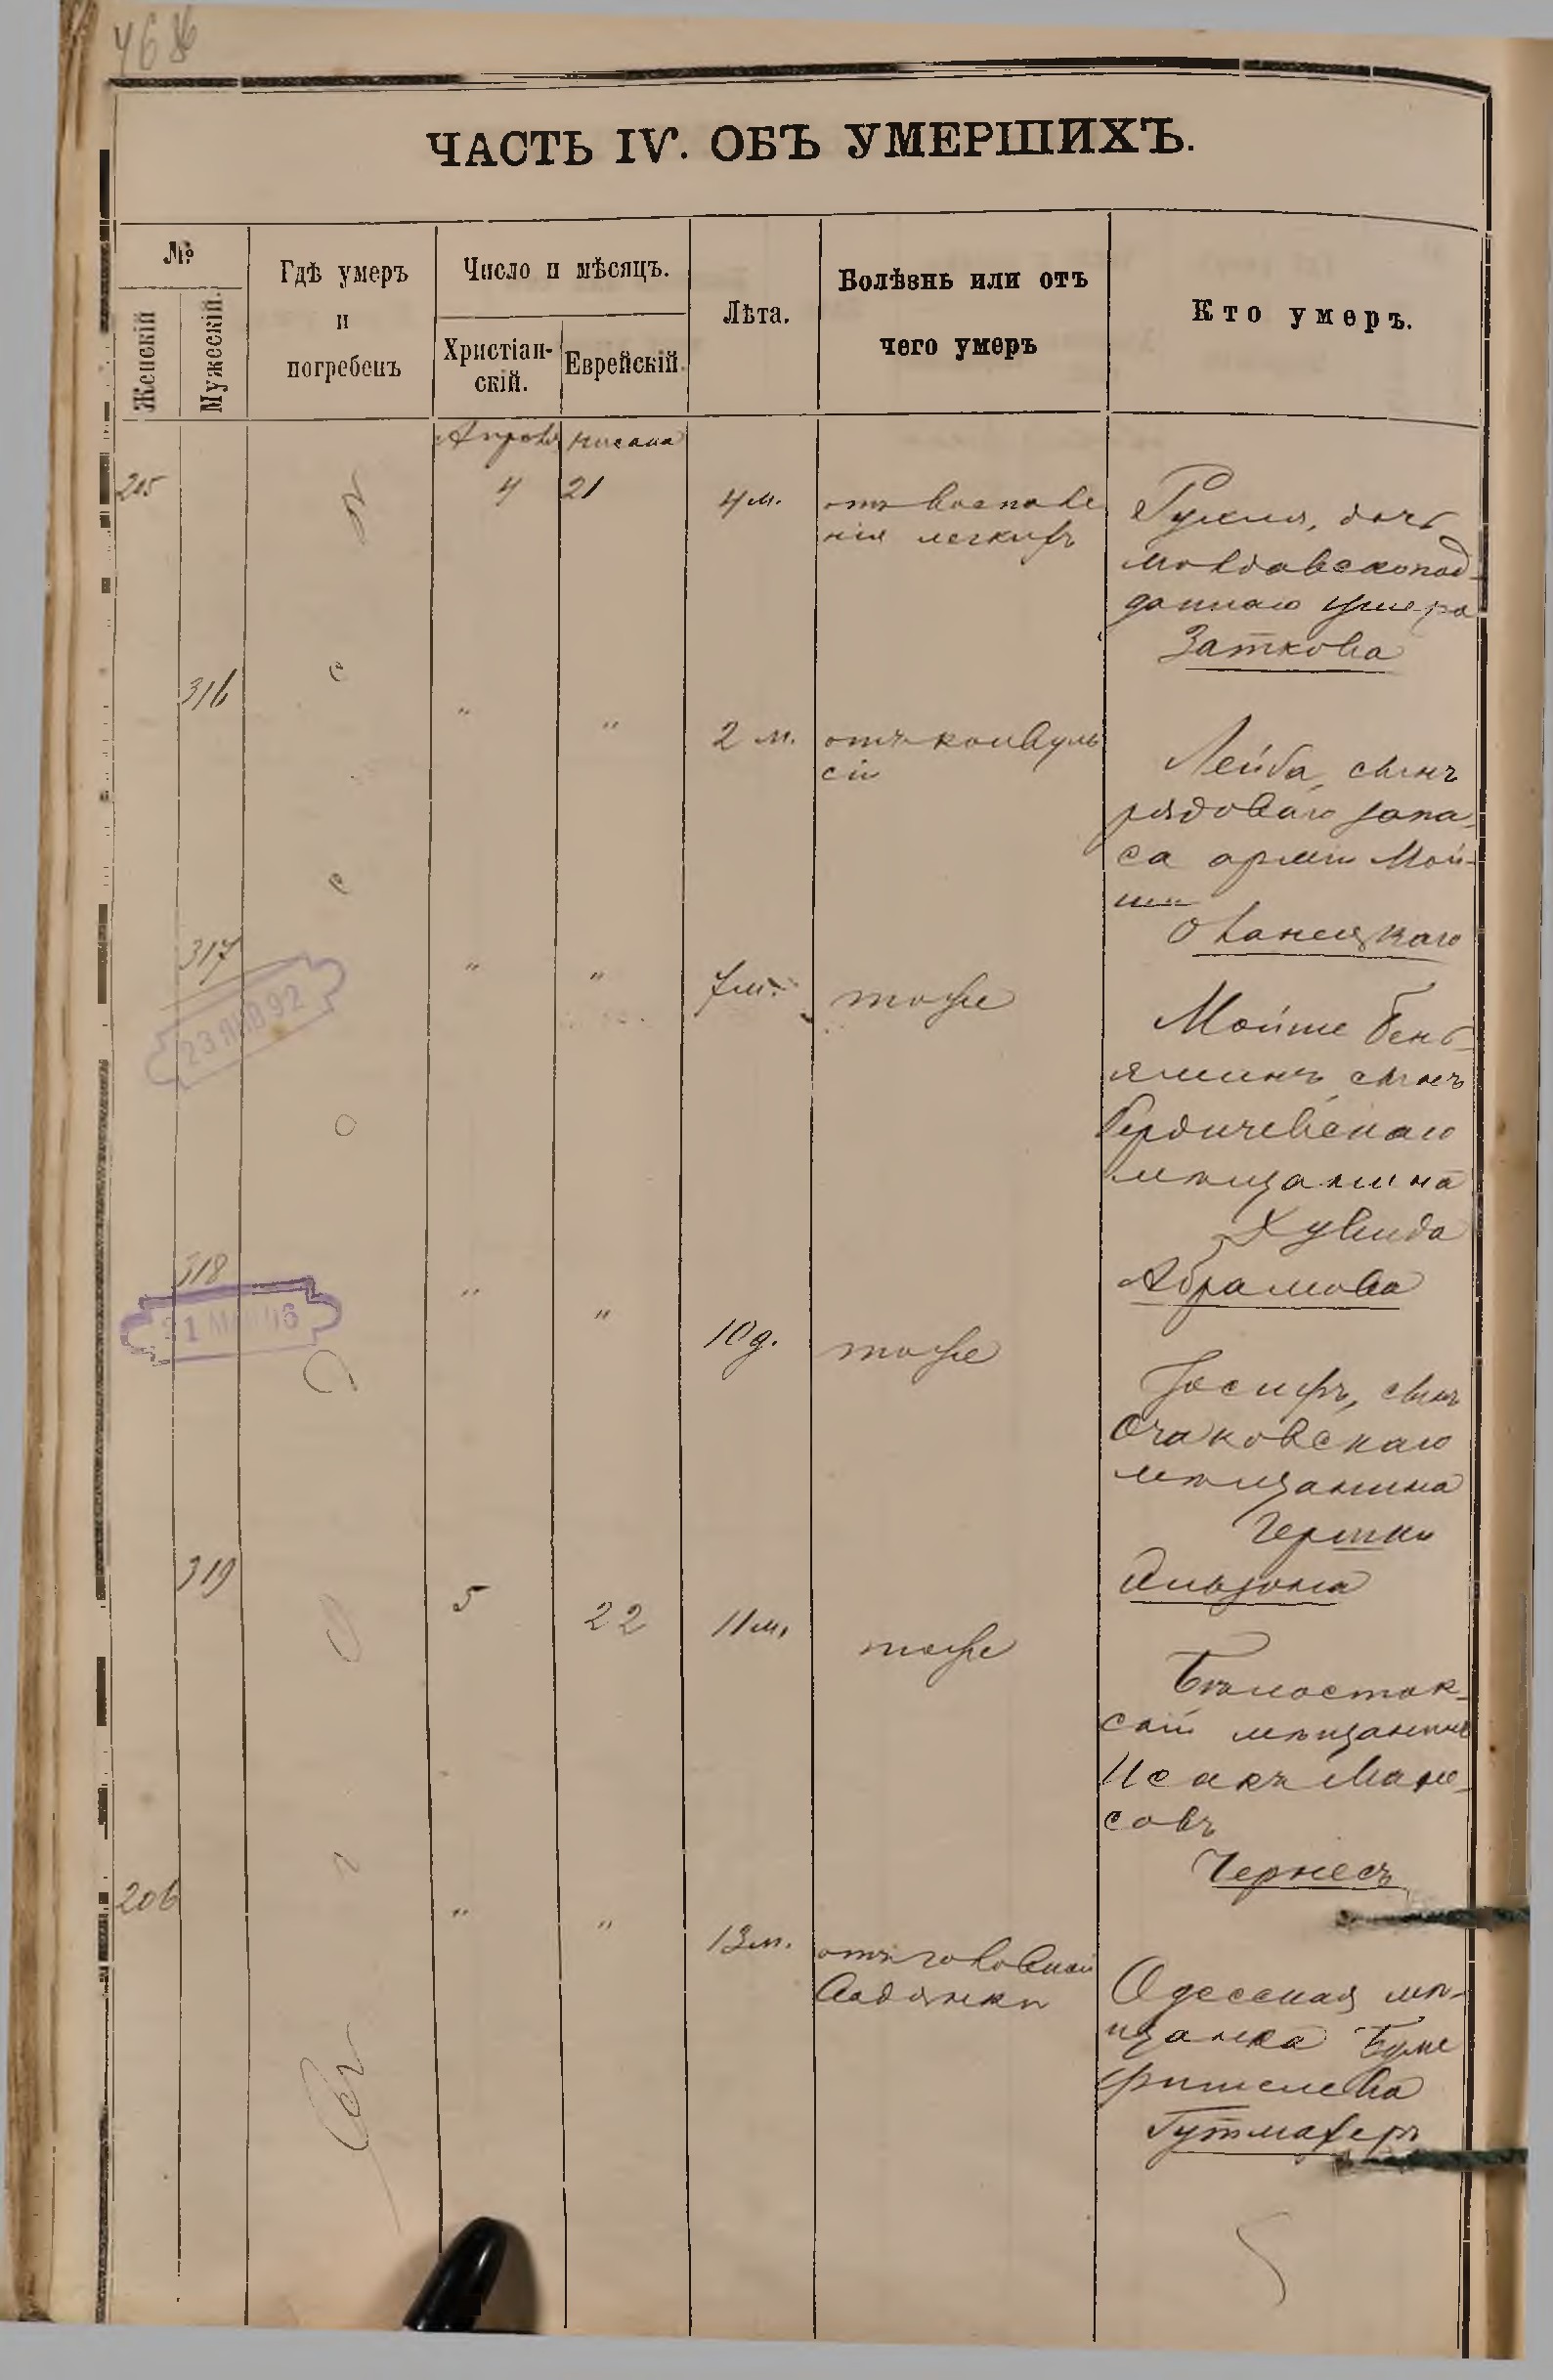 ЧАСТЬ IV. ОБЪ УМЕРШИХЪ.
№
Женскій
Мужескій.
Гдѣ умеръ
и
погребенъ
Число и мѣсяцъ.
Христіан-
скій.
Еврейскій.
Лѣта.
Болѣзнь или отъ
чего умеръ
Кто умеръ.
Апрѣль нисана
205 4 21 4 м. отъ воспале
нія легкихъ
Рухля, дочь
молдавскопод-
даннаго Ушера
Заткова
316 " " 2 м. отъ конвуль
сій
Лейба, сынъ
рядоваго запа-
са арміи Мой-
ши
317 " " 7 м. тоже
Мойше Бень-
яминъ сынъ
Бердичевскаго
мѣщанина
Абрамова
318 " " 10 д. тоже
Іосифъ, сынъ
Очаковскаго
мѣщанина
Гершки
319 5 22 11 м. тоже
Бѣлосток-
скій мѣщанинъ
Исакъ
совъ
Чернесъ
206 " " 13 м. отъ головной
водянки
Одесская мѣ-
щанка
Фишелева
Гутмахеръ
23 ЯНВ 92